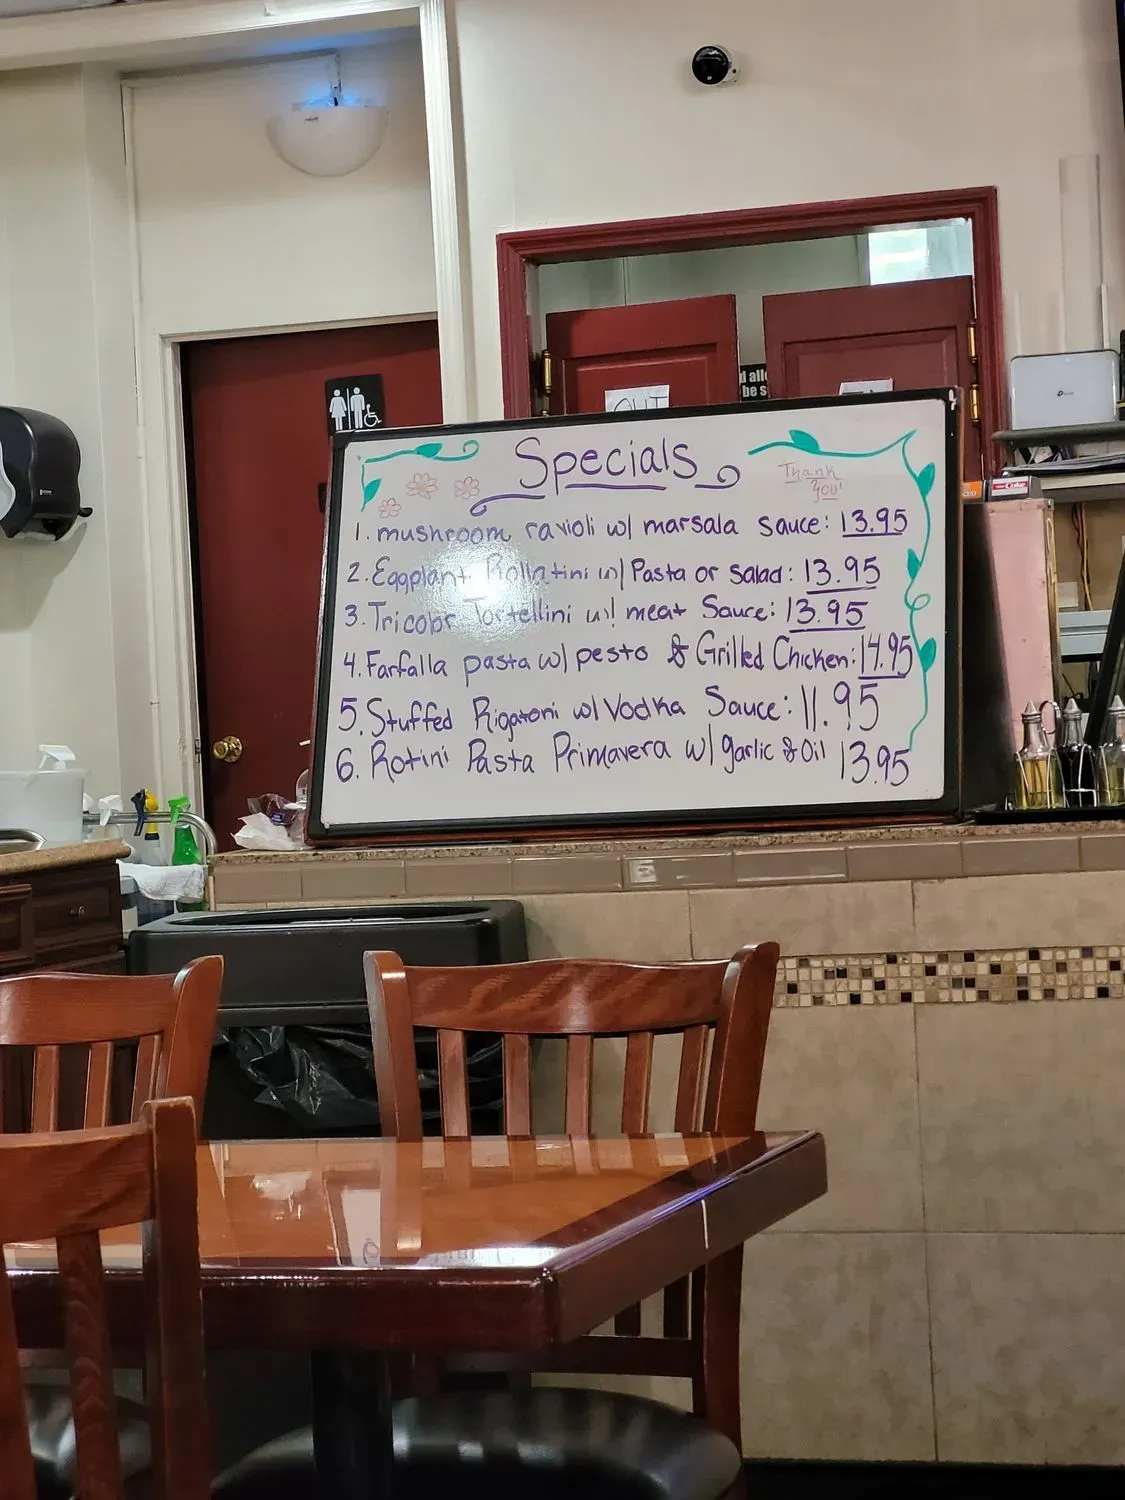 d allo
be s
OUT
Specials
Thank
you!
Coke
1. mushroom ravioli w/ marsala sauce: 13.95
2. Eggplant Rollatini w/ Pasta or salad: 13.95
3. Tricolor Tortellini w/ meat Sauce: 13.95
4. Farfalla pasta w/ pesto & Grilled Chicken: 14.95
5. Stuffed Rigatoni w/ Vodka Sauce: 11.95
6. Rotini Pasta Primavera w/ garlic & Oil 13.95